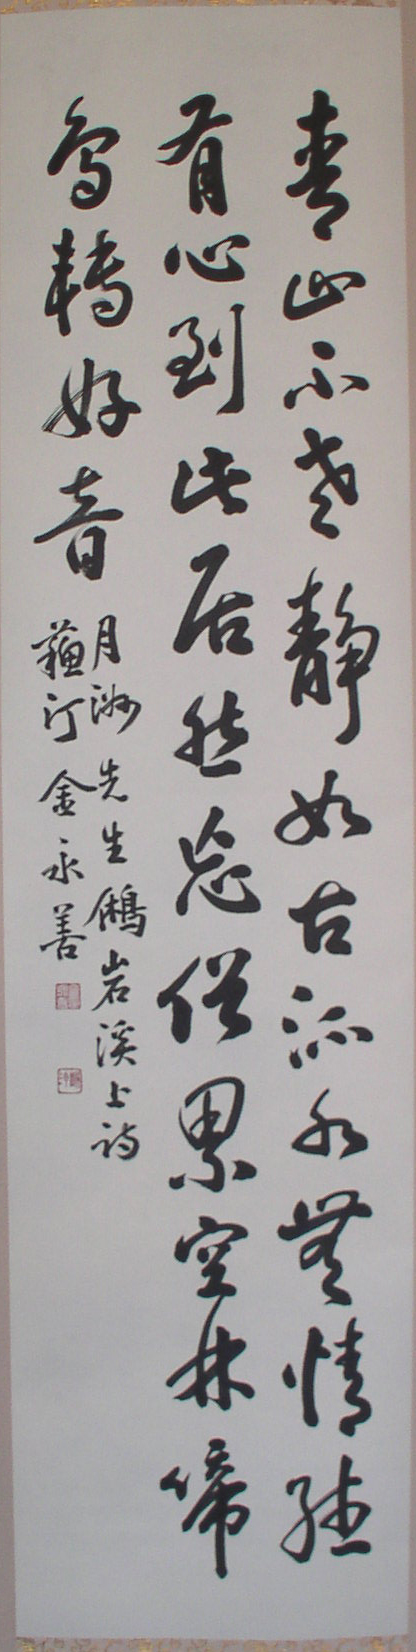 青山不老靜如古流水無情
有心到此居然忘俗累空林啼
鳥轉好音
月洲先生鵂岩溪上詩
蘓汀 金永善